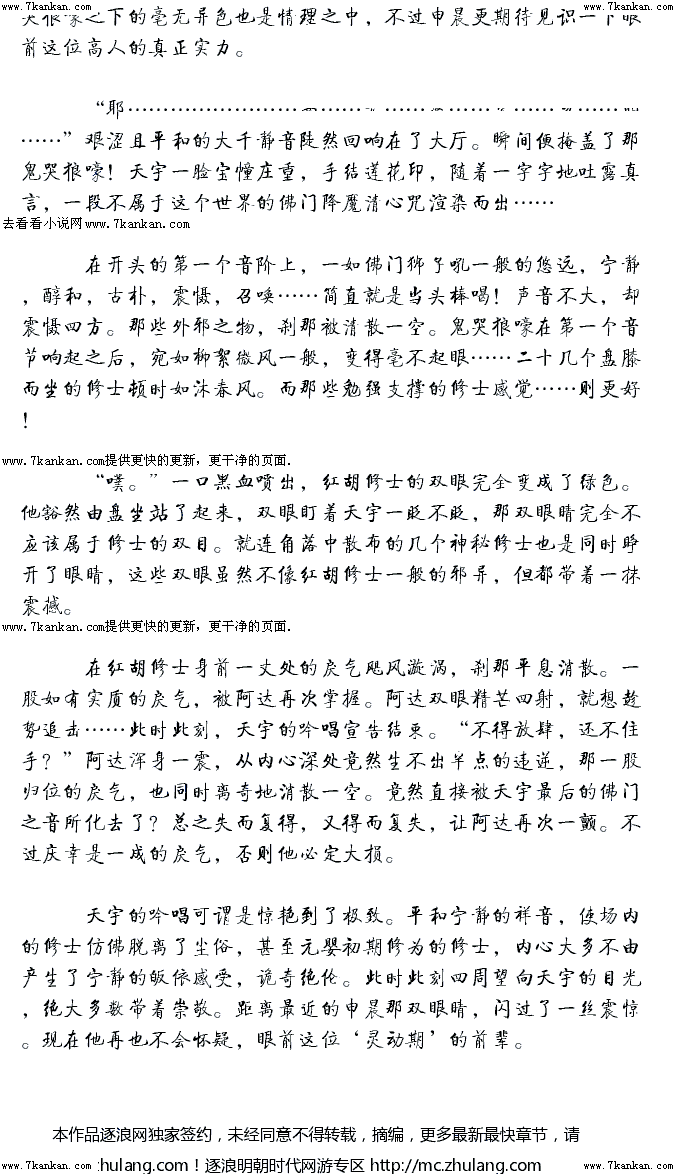 哭狼嚎之下的毫无异色也是情理之中，不过申晨更期待见识一下眼
前这位高人的真正实力。
“耶……………………
……”艰涩且平和的大千静音陡然回响在了大厅。瞬间便掩盖了那
鬼哭狼嚎！天宇一脸宝幢庄重，手结莲花印，随着一字字地吐露真
言，一段不属于这个世界的佛门降魔清心咒渲染而出……
去看看小说网www.7kankan.com
在开头的第一个音阶上，一如佛门狮子吼一般的悠远，宁静
，醇和，古朴，震慑，召唤……简直就是当头棒喝！声音不大，却
震慑四方。那些外邪之物，刹那被清散一空。鬼哭狼嚎在第一个音
节响起之后，宛如柳絮微风一般，变得毫不起眼……二十几个盘膝
而坐的修士顿时如沐春风。而那些勉强支撑的修士感觉……则更好
！
www.7kankan.com提供更快的更新，更干净的页面.
“噗。”一口黑血喷出，红胡修士的双眼完全变成了绿色。
他豁然由盘坐站了起来，双眼盯着天宇一眨不眨，那双眼睛完全不
应该属于修士的双目。就连角落中散布的几个神秘修士也是同时睁
开了眼睛，这些双眼虽然不像红胡修士一般的邪异，但都带着一抹
震撼。
www.7kankan.com提供更快的更新，更干净的页面.
在红胡修士身前一丈处的戾气飓风漩涡，刹那平息消散。一
股如有实质的戾气，被阿达再次掌握。阿达双眼精芒四射，就想趁
势追击……此时此刻，天宇的吟唱宣告结束。“不得放肆，还不住
手？”阿达浑身一震，从内心深处竟然生不出半点的违逆，那一股
归位的戾气，也同时离奇地消散一空。竟然直接被天宇最后的佛门
之音所化去了？总之失而复得，又得而复失，让阿达再次一颤。不
过庆幸是一成的戾气，否则他必定大损。
天宇的吟唱可谓是惊艳到了极致。平和宁静的祥音，使场内
的修士仿佛脱离了尘俗，甚至元婴初期修为的修士，内心大多不由
产生了宁静的皈依感受，诡奇绝伦。此时此刻四周望向天宇的目光
，绝大多数带着崇敬。距离最近的申晨那双眼睛，闪过了一丝震惊
。现在他再也不会怀疑，眼前这位‘灵动期’的前辈。
本作品逐浪网独家签约，未经同意不得转载，摘编，更多最新最快章节，请
www.7kankan.com :hulang.com！逐浪明朝时代网游专区 http://mc.zhulang.com www.7kankan.com